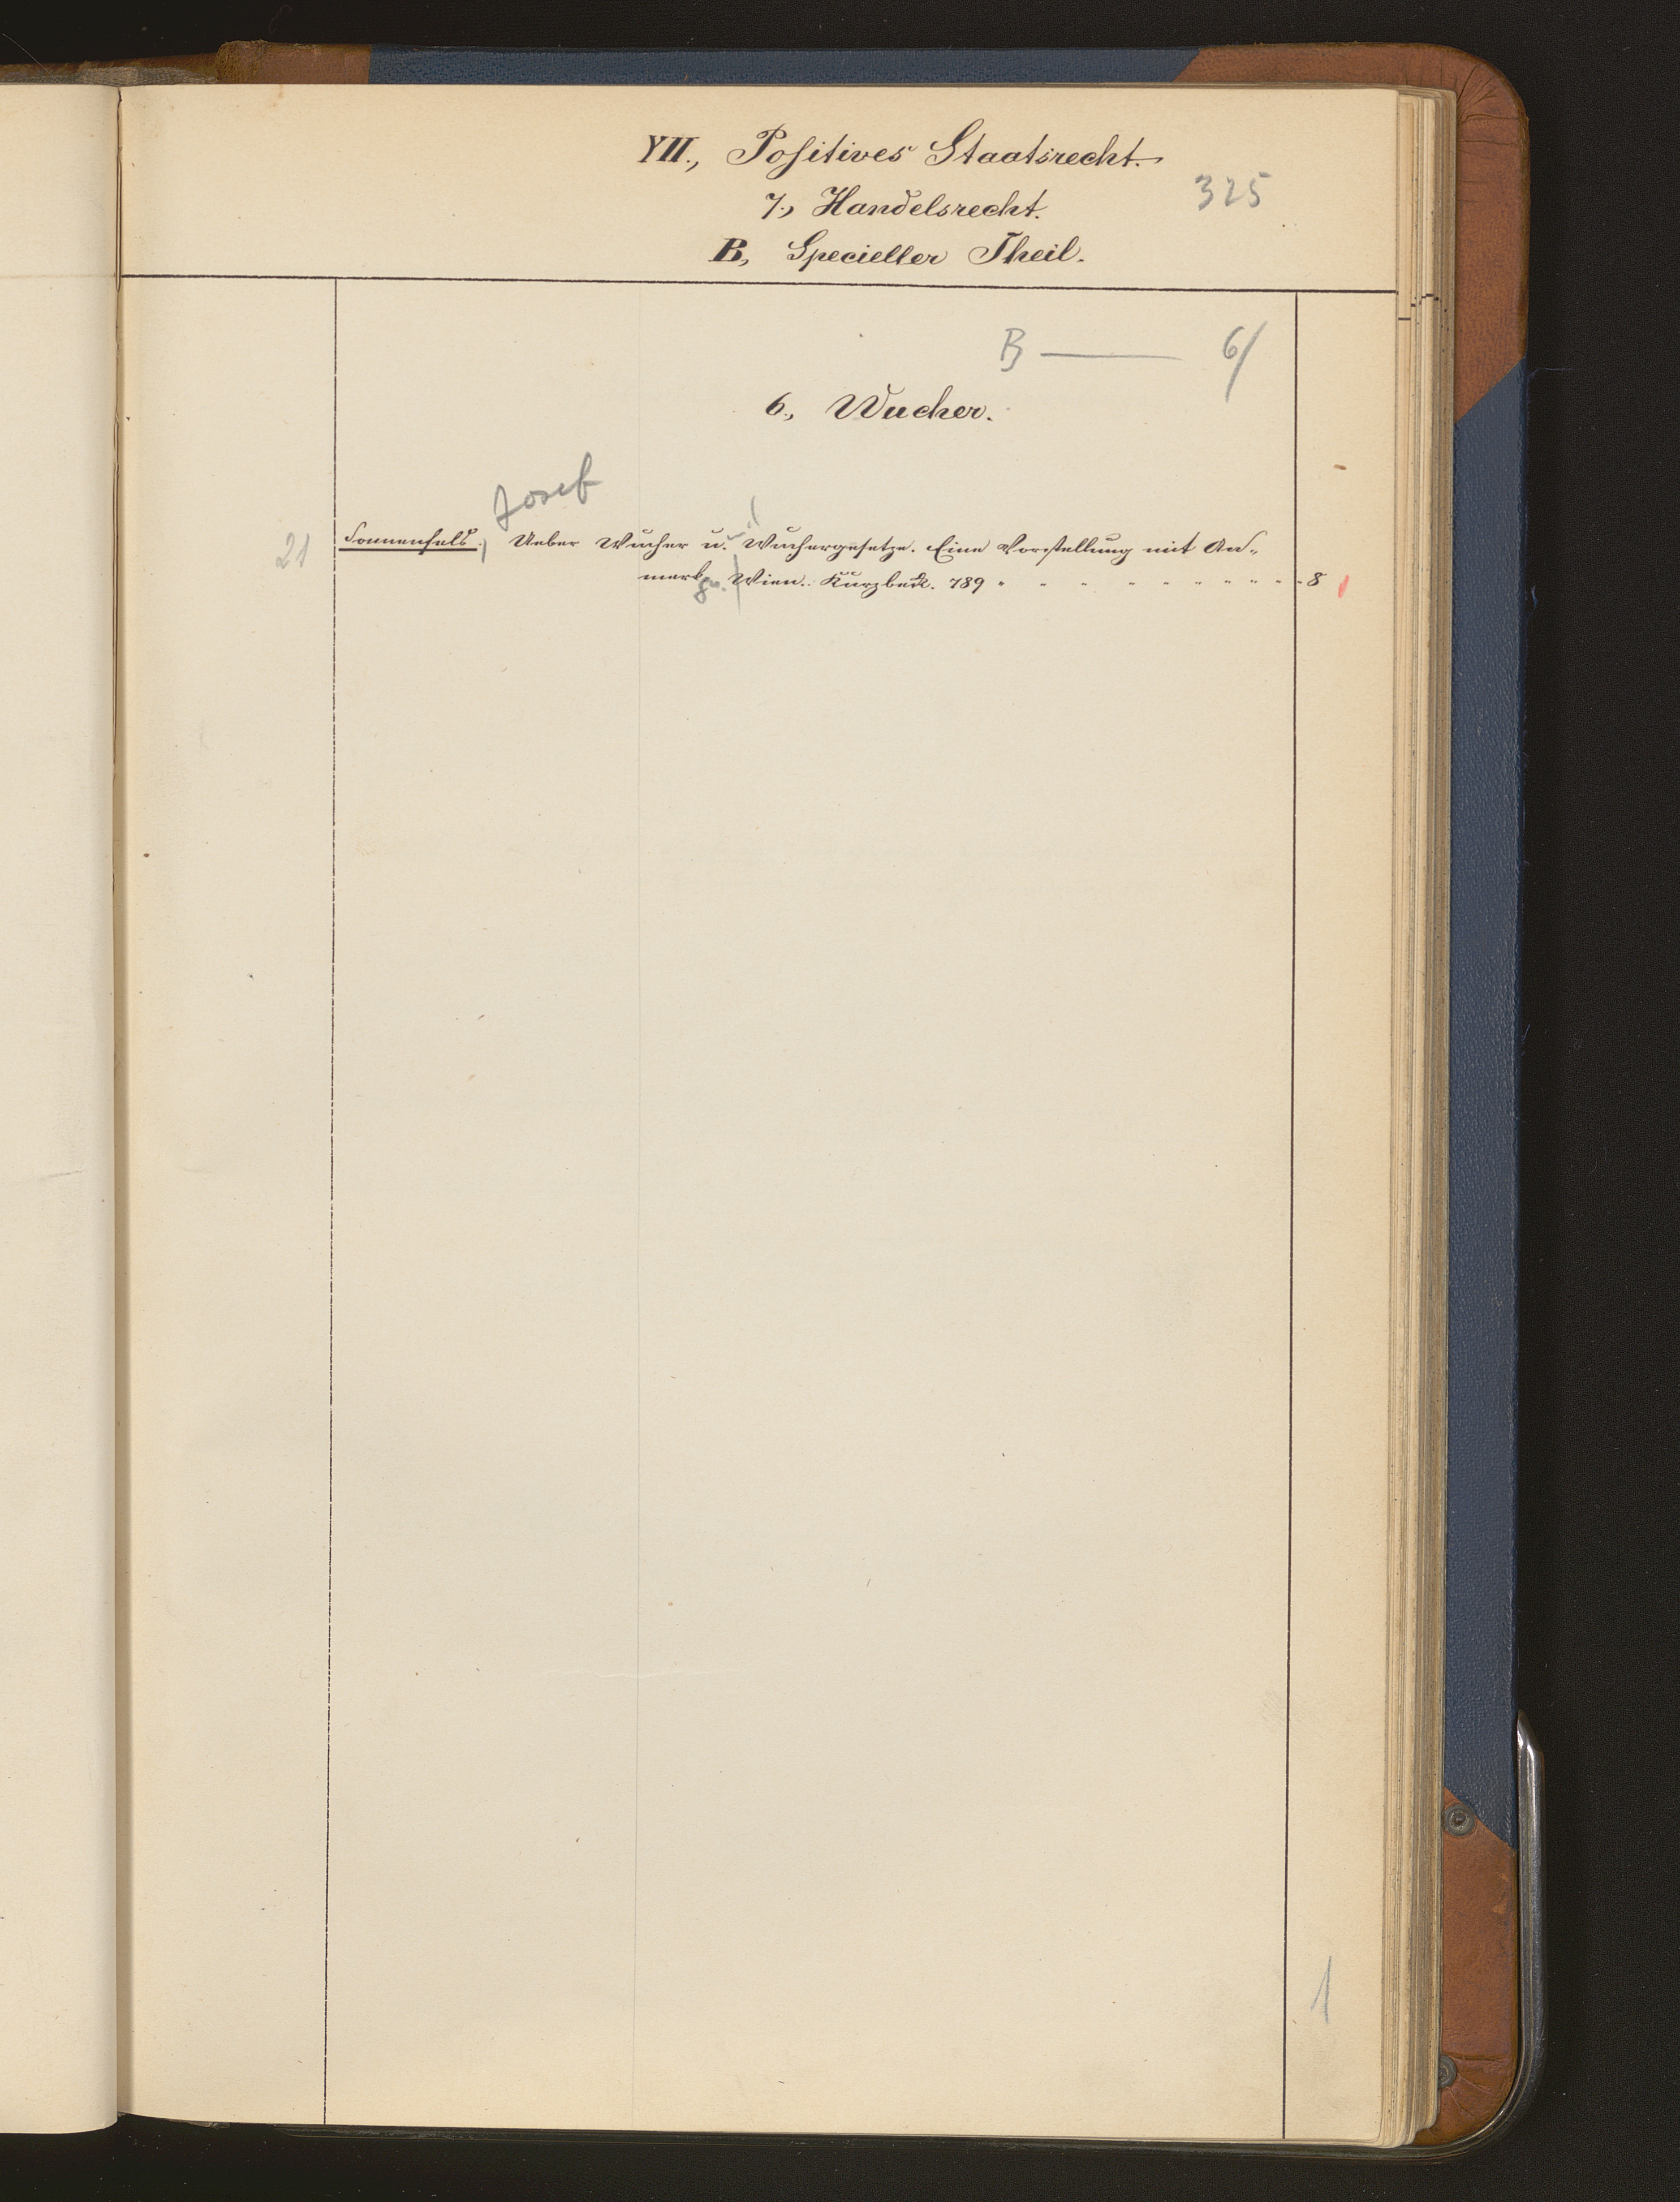 VII., Positives Staatsrecht.
325
7., Handelsrecht.
B, Specieller Theil.
B — 6/
6., Wucher.
Josef
21 Sonnenfels., Ueber Wucher u. Wuchergesetze. Eine Vorstellung mit An-
merkgn. Wien. Kurzbeck. 789 " " " " " " " " " " 8
1